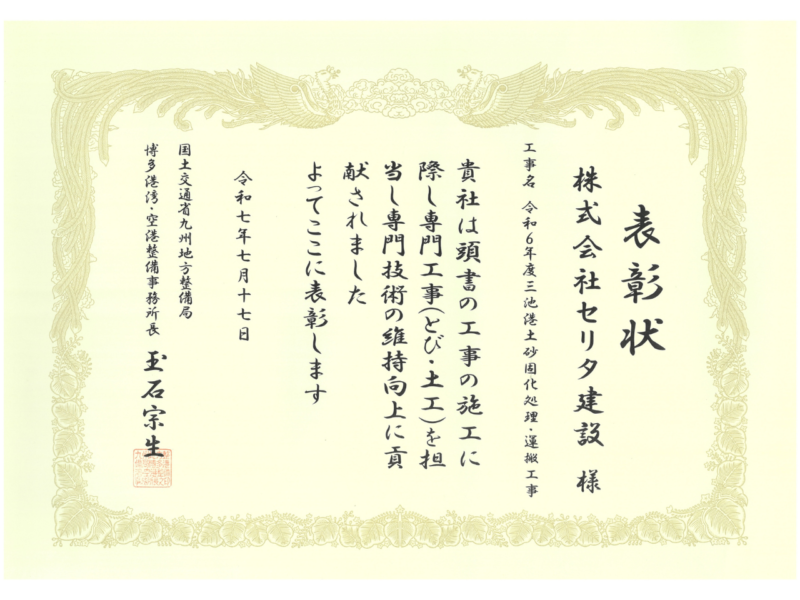 表彰状
株式会社セリタ建設 様
工事名 令和6年度三池港土砂固化処理・運搬工事
貴社は頭書の工事の施工に
際し専門工事(とび・土工)を担
当し専門技術の維持向上に貢
献されました
よってここに表彰します
令和七年七月十七日
国土交通省九州地方整備局
博多港湾・空港整備事務所長 玉石宗生